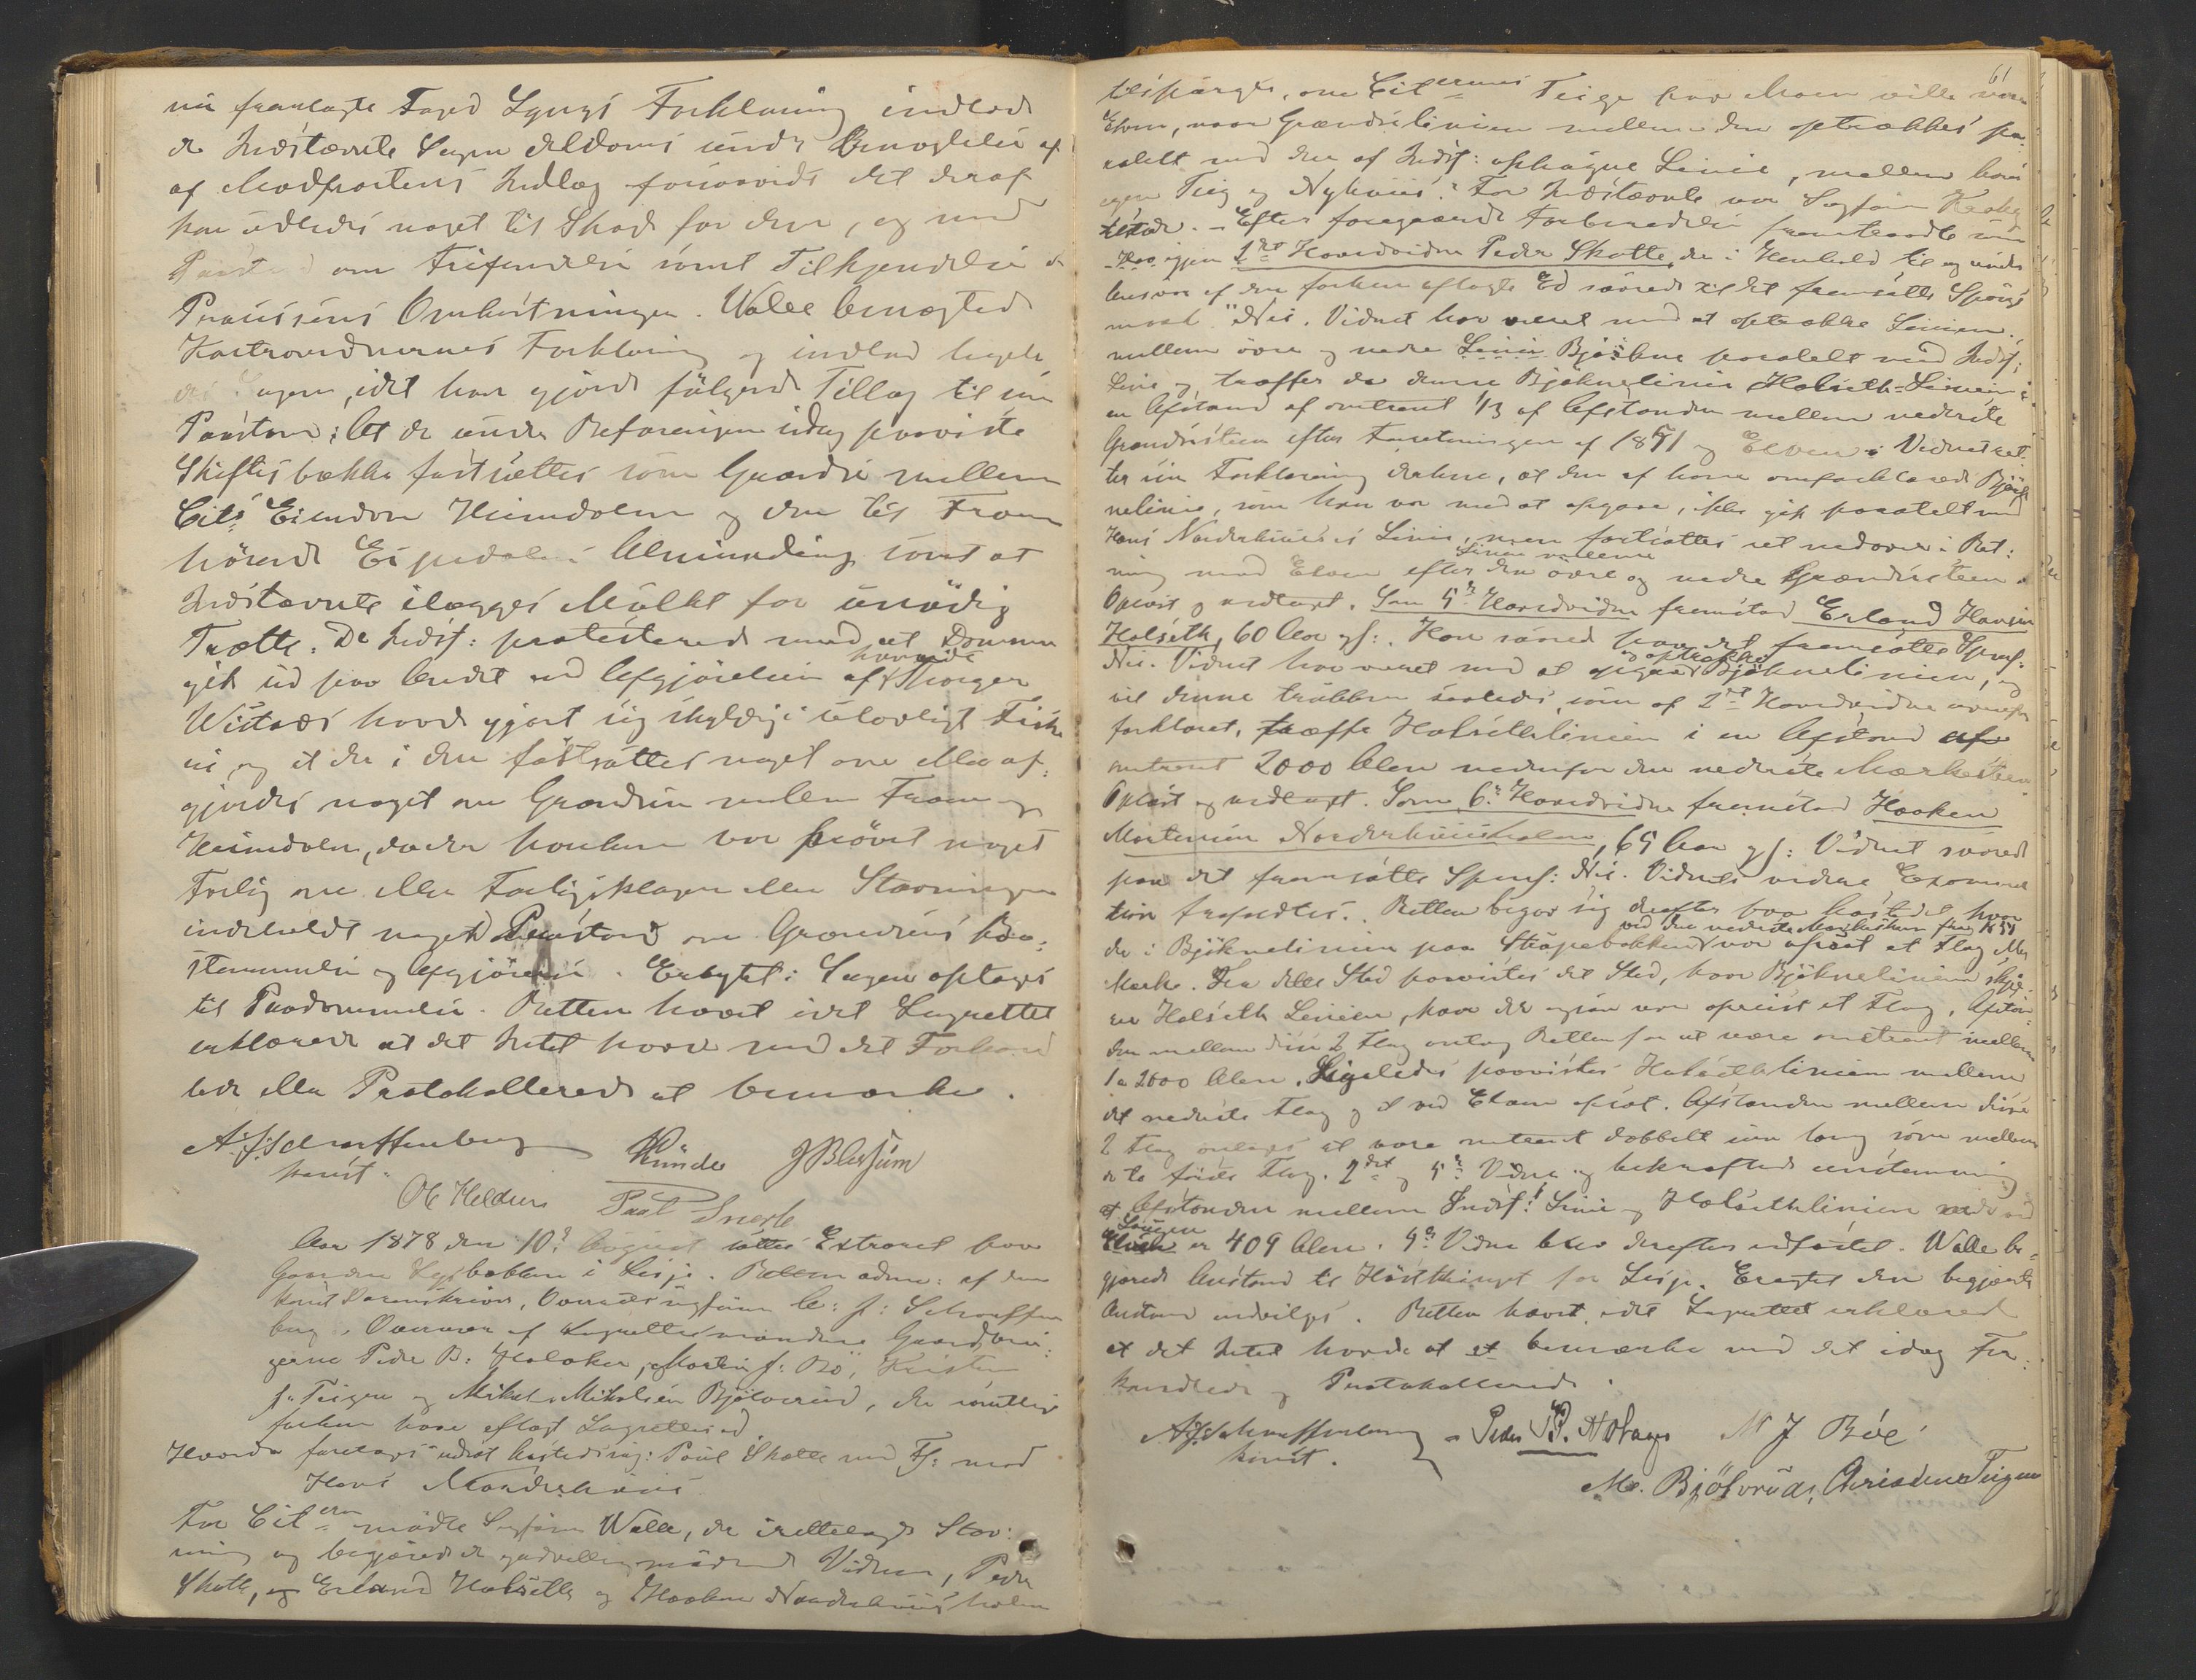 nu fremlagte Foged Lyngs Forklaring indlod
de Indstævnte Sagen deldoms under Benægtelse af
af Modpartens Indlæg forsaavidt det deraf
kan udledes noget til Skade for dem, og med
Paastand om Frifindelse samt Tilkjendelse af
Processens Omkostninger. Walle benægtede
Kontravidnernes Forklaring og indlod ligele-
des Sagen, idet han gjorde følgende Tillæg til sin
Paastand: At de under Befaringen idag paaviste
Skiftesbække fastsættes som Grændse mellem
Cits Eiendom Heimdalen og den til Fron
hørende Espedals Alminding samt at
Indstævnte ilægges Mulkt for unødig
Trætte. De Indst: protesterede mod at Dommen
gik ud paa Andet end Afgjørelsen af Spørgsm
hvorvidt
Wistad havde gjort sig skyldig i ulovligt Fiske-
ri, og at der i den fastsættes noget om eller af-
gjordes noget om Grændsen mellem Fron og
Heimdalen, da der hverken var prøvet noget
Forlig om eller Forligsklagen eller Stævningen
indeholdt nogen Paastand om Grændsens Be-
stemmelse og Afgjørelse. Eragtet: Sagen optages
til Paadømmelse. Retten hævet idet Lagrettet
erklærede at det Intet havde ved det Forhand
lede eller Protokollerede at bemærke.
A. J. Scharffenberg
const.
Künde J Blessum
Ole Heldre Paul Snerle
Aar 1878 den 10de August sattes Extraret paa
Gaarden Lysbakken i Lesje. Retten adm: af den
const Sorenskriver, Overretssagfører A: J: Scharffen
berg. Overvær af Lagrettesmændene Gaardbru-
gerne Peder B: Holaker, Morten J: Bø, Kristen
J. Teigen og Mikel Mikelsen Bjølverud, der samtlige
forhen have aflagt Lagrettesed
Hvorda foretoges udsat Aastedssag: Poul Skotte med Fl: mod
Hans Norderhuus
For Citerne mødte Sagfører Walle, der irettelagde Stæv-
ning og begjærede de godvillig mødende Vidner, Peder
Skotte, og Erland Holseth og Haaken Norderhuusholen
61
tilspurgte, om Citernes Teige paa Moen ville naa
Elven, naar Grændselinien mellem dem optrækkes pa-
ralelt med den af Indst: ophugne Linie, mellem hans
egen Teig og Nyhuus? For Indstævnte var Sagfører
tilstede. – Efter foregaaende Forberedelse fremtraadte nu
igjen 1ste Hovedvidne Peder Skotte, der i Henhold til og under
Ansvar af den forhen aflagte Ed svarede til det fremsatte Spørgs
maal "Nei. Vidnet har været med at optrække Linien
mellem øvre og nedre Linie Bjøkne paralelt med Indst:
Linie og træffer da denne Bjøknelinie Holseth-Linien i
en Afstand af omtrent 1/3 af Afstanden mellem nederste
Grændsesteen efter Forretningen af 1851 og Elven. Vidnet ret-
ter sin Forklaring derhen, at den af ham omforklarede Bjøk
nelinie, som han var med at opgaae, ikke gik paralelt med
Hans Norderhuus's Linie, men fortsattes ret nedover i Ret-
Linien mellem
ning med Elven efter den øvre og nedre Grændsesteen.
Oplæst og vedtaget. Som 5te Hovedvidne fremstod Erland Hansen
Holseth, 60 Aar gl:. Han svarede paa det fremsatte Sprsm:
Nei. Vidnet har været med at opgaa Bjøknelinien, og
og optrække
vil denne trækken saaledes, som af 1ste Hovedvidne ovenfor
forklaret, træffe Holsethlinien i en Afstand af
omtrent 2000 Alen nedenfor den nederste Mærkesteen
Oplæst og vedtaget. Som 6te Hovedvidne fremstod Haaken
Mortensen Norderhuusholen, 65 Aar gl: Vidnet svarede
paa det fremsatte Sprsm: Nei. Vidnets videre Examina
tion frafaldtes. Retten begav sig derefter paa Aastedet hvor
ved den nederste Mærkesteen fra 1851
der i Bjøknelinien paa Skaapebakken var opsat et Flag eller
Mærke. Fra dette Sted paavistes det Sted, hvor Bjøknelinien skjæ-
rer Holseth Linien, hvor der ogsaa var opreist et Flag. Afstan-
den mellem disse 2 Flag antog Retten for at være omtrent mellem
1 a 2000 Alen. Ligeledes paavistes Holsethlinien mellem
det nederste Flag og et ved Elven opsat. Afstanden mellem disse
2 Flag antoges at være omtrent dobbelt saa lang som mellem
de to første Flag. 2det og 5te Vidne bekræftede enstemmig
at Afstanden mellem Indst: Linie og Holsethlinien nede ved
Laugen
Elven er 409 Alen. 5te Vidne blev derefter edfæstet. Walle be-
gjærede Anstand til Høstthinget for Lesje. Eragtet den begjærte
Anstand indvilges. Retten hævet, idet Lagrettet erklærede
at det Intet havde at at bemærke ved det idag For-
handlede og Protokollerede.
A. J. Scharffenberg – Peder B. Holager M J Bøe
const.
M. Bjølverud, Christen Teigen